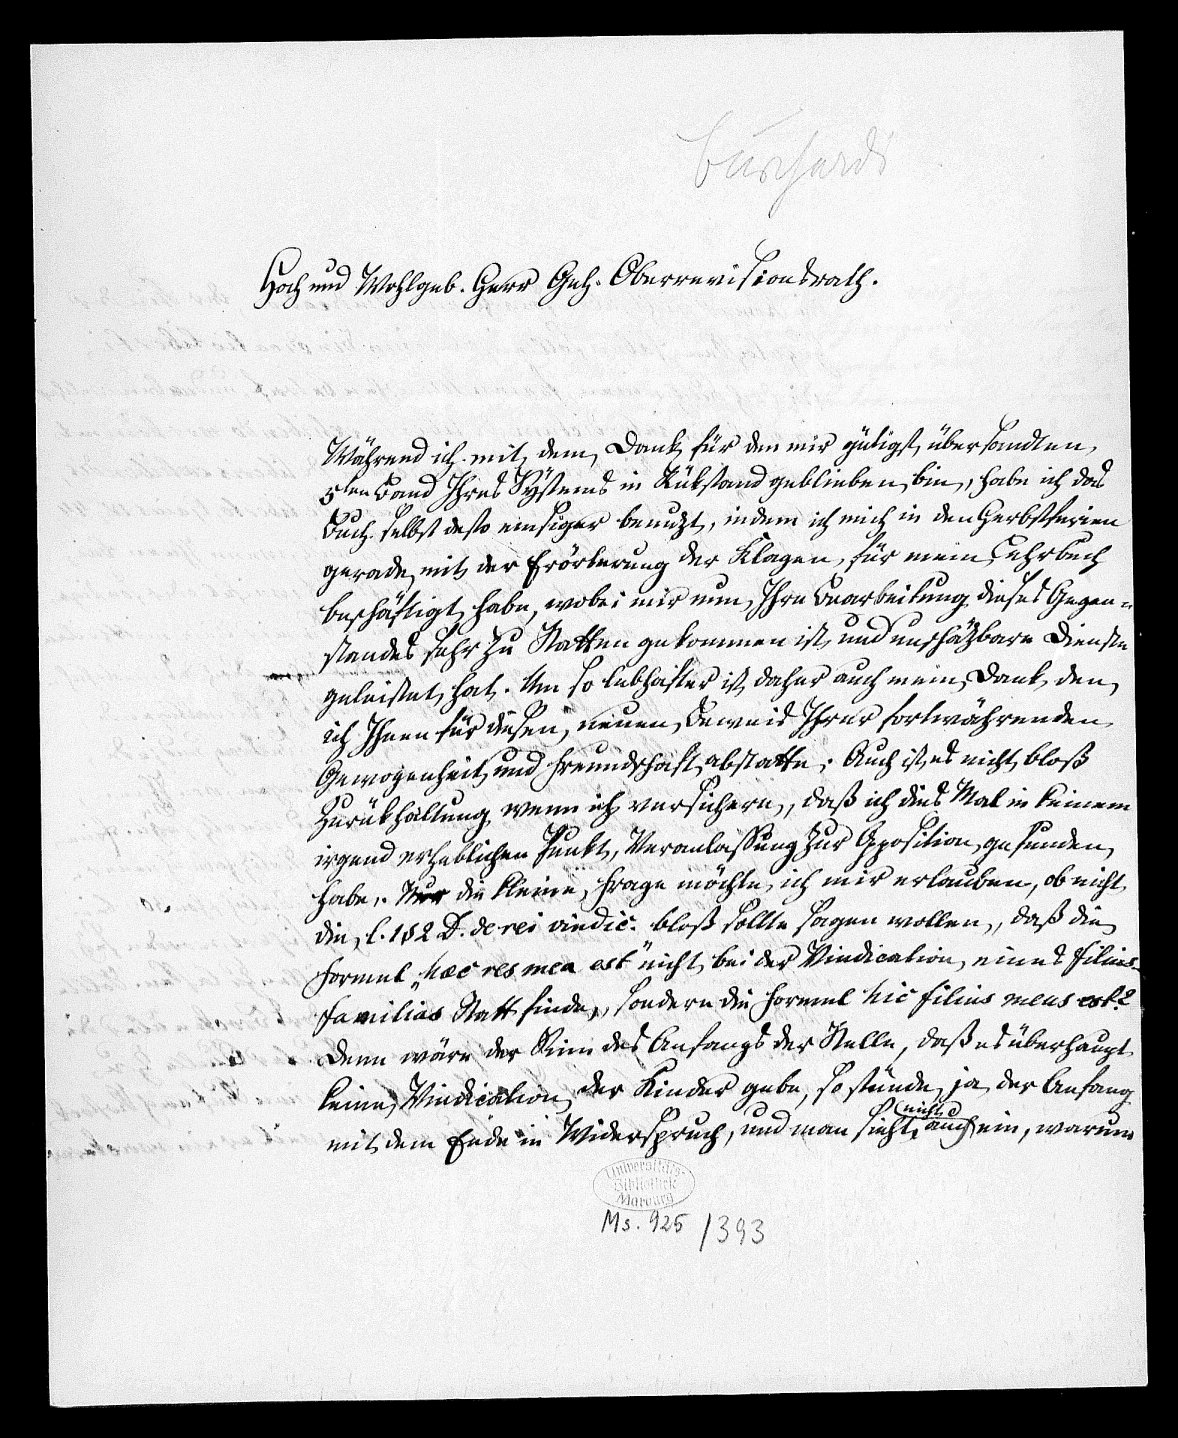 Burchardi
Hoch und Wohlgeb. Herr Geh. Oberrevisionsrath.
Während ich mit dem Dank für den mir gütigst übersandten
5ten Band Ihres Systems in Rükstand geblieben bin, habe ich das
Buch selbst desto emsiger benuzt, indem ich mich in den Herbstferien
gerade mit der Erörterung der Klagen für mein Lehrbuch
beschäftigt habe, wobei mir nun Ihre Bearbeitung dieses Gegen-
standes sehr zu Statten gekommen ist und unschäzbare Dienste
geleistet hat. Um so lebhafter ist daher auch mein Dank, den
ich Ihnen für diesen neuen Beweis Ihrer fortwährenden
Gewogenheit und Freundschaft abstatte. Auch ist es nicht bloß
Zurükhaltung wenn ich versichere, daß ich dies Mal in keinem
irgend erheblichen Punkte Veranlassung zur Opposition gefunden
habe. Nur die kleine Frage möchte ich mir erlauben, ob nicht
die l. 1 § 2 D. de rei vindic. bloß sollte sagen wollen, daß die
Formel „haec res mea est" nicht bei der Vindication eines filius
familias Statt finde, sondern die Formel hic filius meus est?
Denn wäre der Sinn des Anfangs der Stelle, daß es überhaupt
keine Vindication der Kinder gebe, so stünde ja der Anfang
mit dem Ende in Widerspruch, und man sieht auch nicht ein, warum
Universitäts-
Bibliothek
Marburg
Ms. 925/393